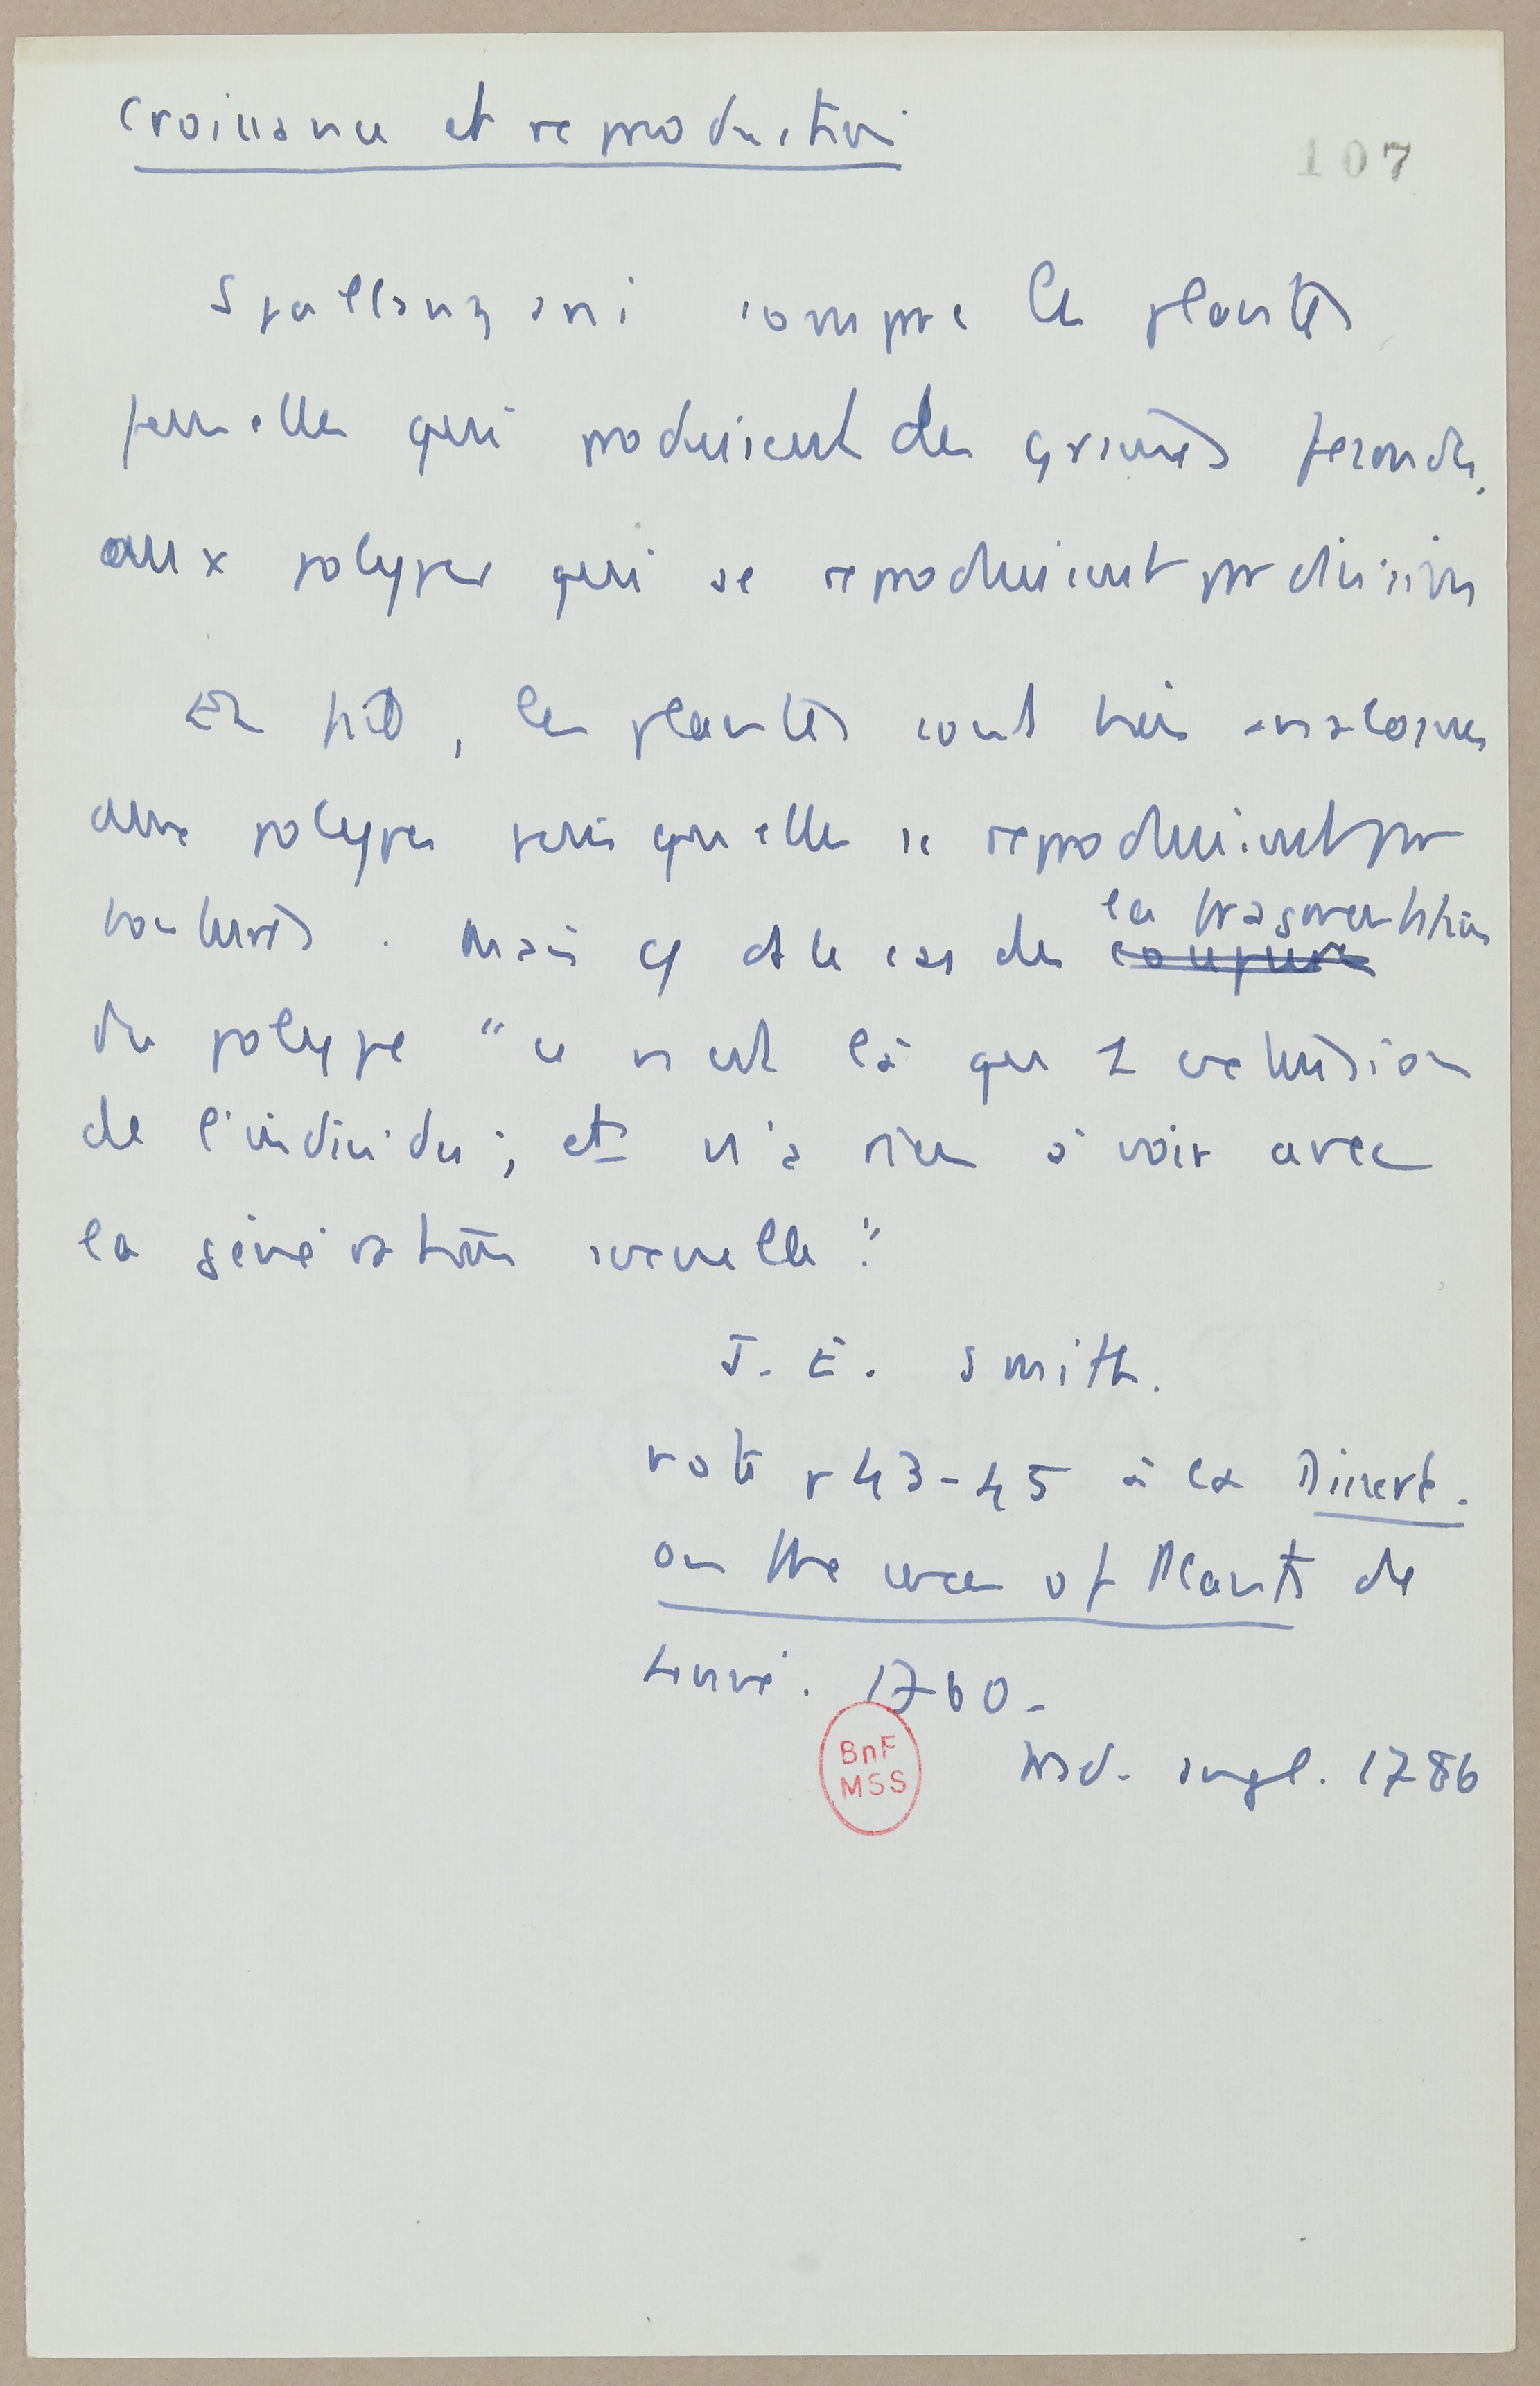 Croissance et reproduction
107
Spallanzani compare les plantes
femelles qui produisent des graines fecondes
aux polypes qui se reproduisent par division
En fait, les plantes sont très analogues
aux polypes puisqu'elles se reproduisent par
boutures. Mais c'est le cas de la fragmentation
du polype "ce n'est là que 1 extension
de l'individu ; et n'a rien à voir avec
la génération sexuelle."
J. E. Smith.
note p 43-45 à la Dissert.
on the sexes of Plants de
Linné. 1760.
BnF
MSS
trad. angl. 1786